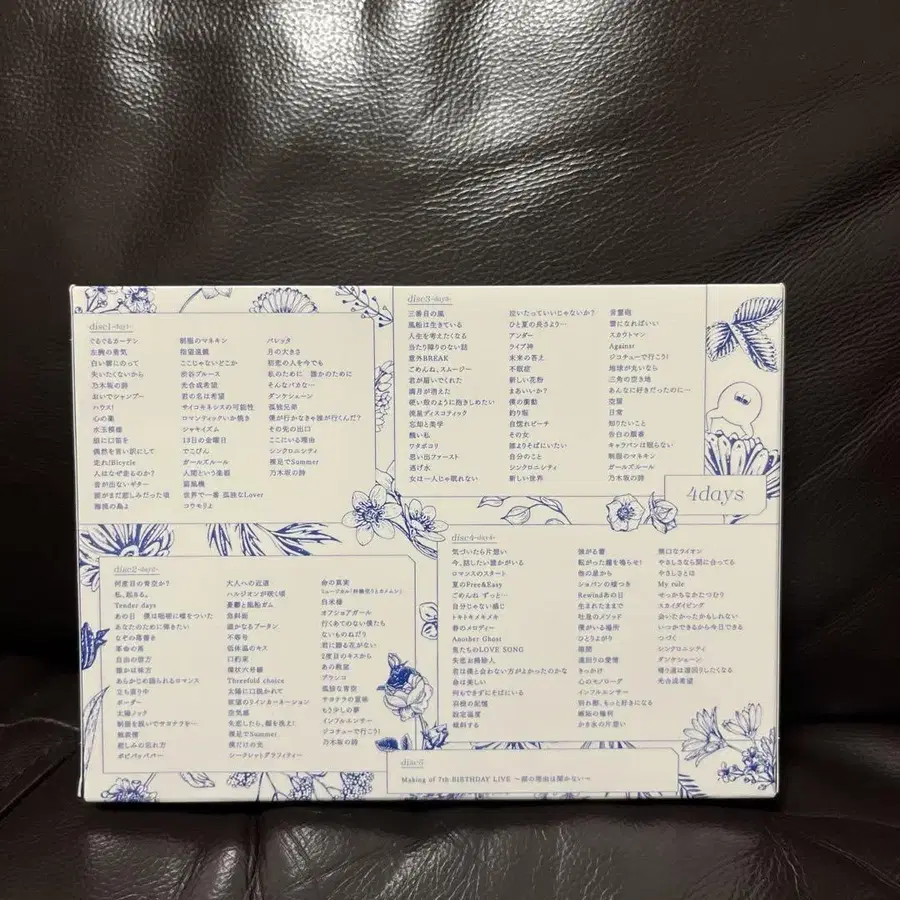 disc1 -day1-
ぐるぐるカーテン
左胸の勇気
白い雲にのって
失いたくないから
乃木坂の詩
おいでシャンプー
ハウス!
心の薬
水玉模様
狼に口笛を
偶然を言い訳にして
走れ!Bicycle
人はなぜ走るのか?
音が出ないギター
涙がまだ悲しみだった頃
海流の島よ
制服のマネキン
指望遠鏡
ここじゃないどこか
渋谷ブルース
光合成希望
君の名は希望
サイコキネシスの可能性
ロマンティックいか焼き
シャキイズム
13日の金曜日
でこぴん
ガールズルール
人間という楽器
扇風機
世界で一番 孤独なLover
コウモリよ
バレッタ
月の大きさ
初恋の人を今でも
私のために 誰かのために
そんなバカな…
ダンケシェーン
孤独兄弟
僕が行かなきゃ誰が行くんだ?
その先の出口
ここにいる理由
シンクロニシティ
裸足でSummer
disc2 -day2-
何度目の青空か?
私、起きる。
Tender days
あの日 僕は咄嗟に嘘をついた
あなたのために弾きたい
なぞの落書き
革命の馬
自由の彼方
誰かは味方
あらかじめ語られるロマンス
立ち直り中
ボーダー
太陽ノック
制服を脱いでサヨナラを…
無表情
悲しみの忘れ方
ポピパッパパー
大人への近道
ハルジオンが咲く頃
憂鬱と風船ガム
急斜面
遥かなるブータン
不等号
低体温のキス
口約束
環状六号線
Threefold choice
太陽に口説かれて
欲望のリインカーネーション
空気感
失恋したら、顔を洗え!
裸足でSummer
僕だけの光
シークレットグラフィティー
命の真実
ミュージカル「林檎売りとカメムシ」
白米様
オフショアガール
行くあてのない僕たち
ないものねだり
君に贈る花がない
2度目のキスから
あの教室
ブランコ
孤独な青空
サヨナラの意味
もう少しの夢
インフルエンサー
ジコチューで行こう!
乃木坂の詩
disc3 -day3-
三番目の風
風船は生きている
人生を考えたくなる
当たり障りのない話
意外BREAK
ごめんね、スムージー
君が扇いでくれた
満月が消えた
硬い殻のように抱きしめたい
流星ディスコティック
忘却と美学
醜い私
ワタボコリ
思い出ファースト
逃げ水
女は一人じゃ眠れない
泣いたっていいじゃないか?
ひと夏の長さより…
アンダー
ライブ神
未来の答え
不眠症
新しい花粉
まあいいか?
僕の衝動
釣り堀
自惚れビーチ
その女
誰よりそばにいたい
自分のこと
シンクロニシティ
新しい世界
音霊砲
雲になればいい
スカウトマン
Against
ジコチューで行こう!
地球が丸いなら
三角の空き地
あんなに好きだったのに…
空扉
日常
知りたいこと
告白の順番
キャラバンは眠らない
制服のマネキン
ガールズルール
乃木坂の詩
4days
disc4 -day4-
気づいたら片想い
今、話したい誰かがいる
ロマンスのスタート
夏のFree&Easy
ごめんね ずっと…
自分じゃない感じ
トキトキメキメキ
春のメロディー
Another Ghost
魚たちのLOVE SONG
失恋お掃除人
君は僕と会わない方がよかったのかな
命は美しい
何もできずにそばにいる
羽根の記憶
設定温度
傾斜する
強がる蕾
転がった鐘を鳴らせ!
他の星から
ショパンの嘘つき
Rewindあの日
生まれたままで
吐息のメソッド
僕がいる場所
ひとりよがり
隙間
遠回りの愛情
きっかけ
心のモノローグ
インフルエンサー
別れ際、もっと好きになる
嫉妬の権利
かき氷の片想い
無口なライオン
やさしさなら間に合ってる
やさしさとは
My rule
せっかちなかたつむり
スカイダイビング
会いたかったかもしれない
いつかできるから今日できる
つづく
シンクロニシティ
ダンケシェーン
帰り道は遠回りしたくなる
光合成希望
disc5
Making of 7th BIRTHDAY LIVE ～涙の理由は聞かない～